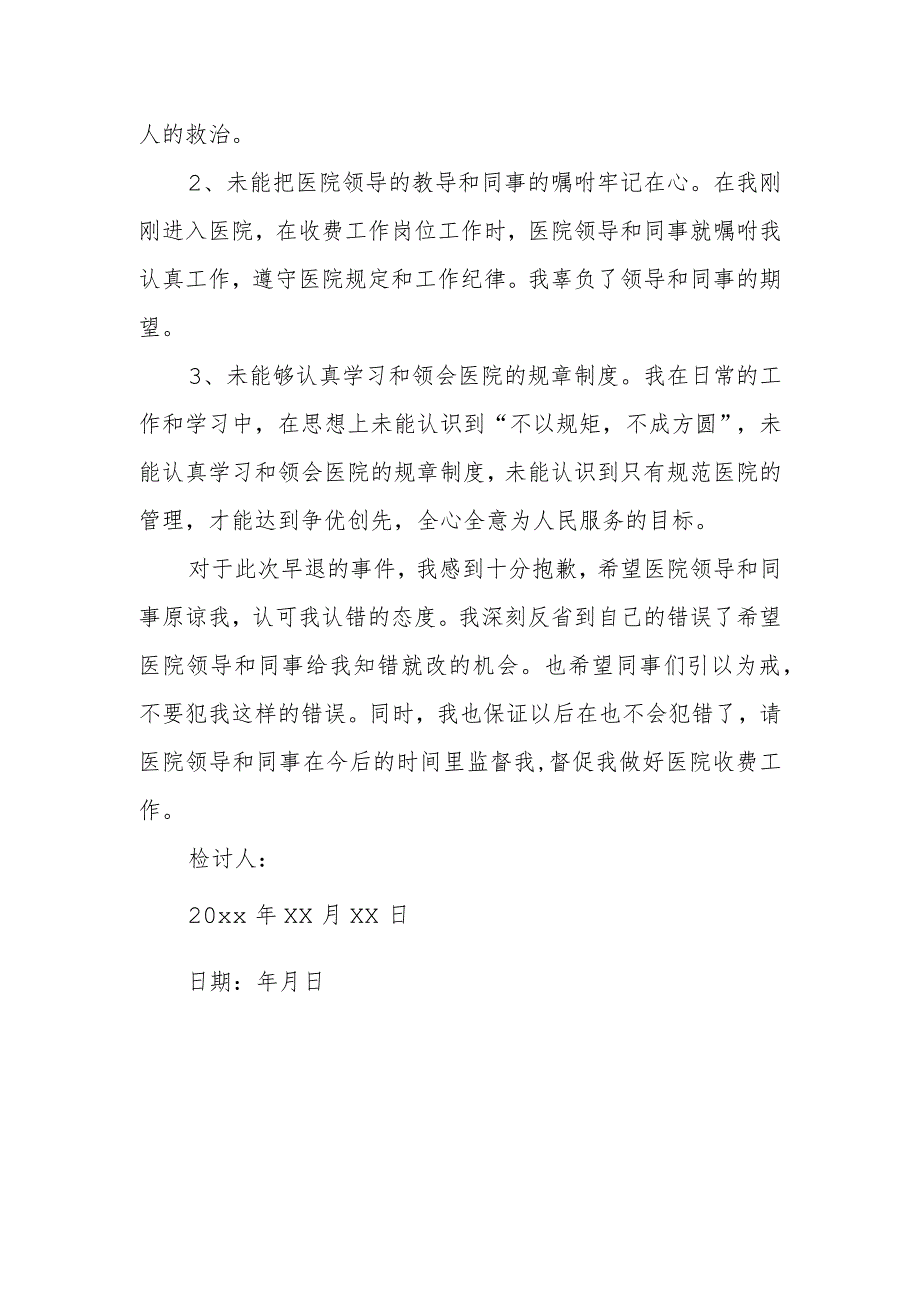 人的救治。
2、未能把医院领导的教导和同事的嘱咐牢记在心。在我刚
刚进入医院，在收费工作岗位工作时，医院领导和同事就嘱咐我
认真工作，遵守医院规定和工作纪律。我辜负了领导和同事的期
望。
3、未能够认真学习和领会医院的规章制度。我在日常的工
作和学习中，在思想上未能认识到“不以规矩，不成方圆”，未
能认真学习和领会医院的规章制度，未能认识到只有规范医院的
管理，才能达到争优创先，全心全意为人民服务的目标。
对于此次早退的事件，我感到十分抱歉，希望医院领导和同
事原谅我，认可我认错的态度。我深刻反省到自己的错误了希望
医院领导和同事给我知错就改的机会。也希望同事们引以为戒，
不要犯我这样的错误。同时，我也保证以后在也不会犯错了，请
医院领导和同事在今后的时间里监督我,督促我做好医院收费工
作。
检讨人：
20xx 年 XX 月 XX 日
日期：年月日